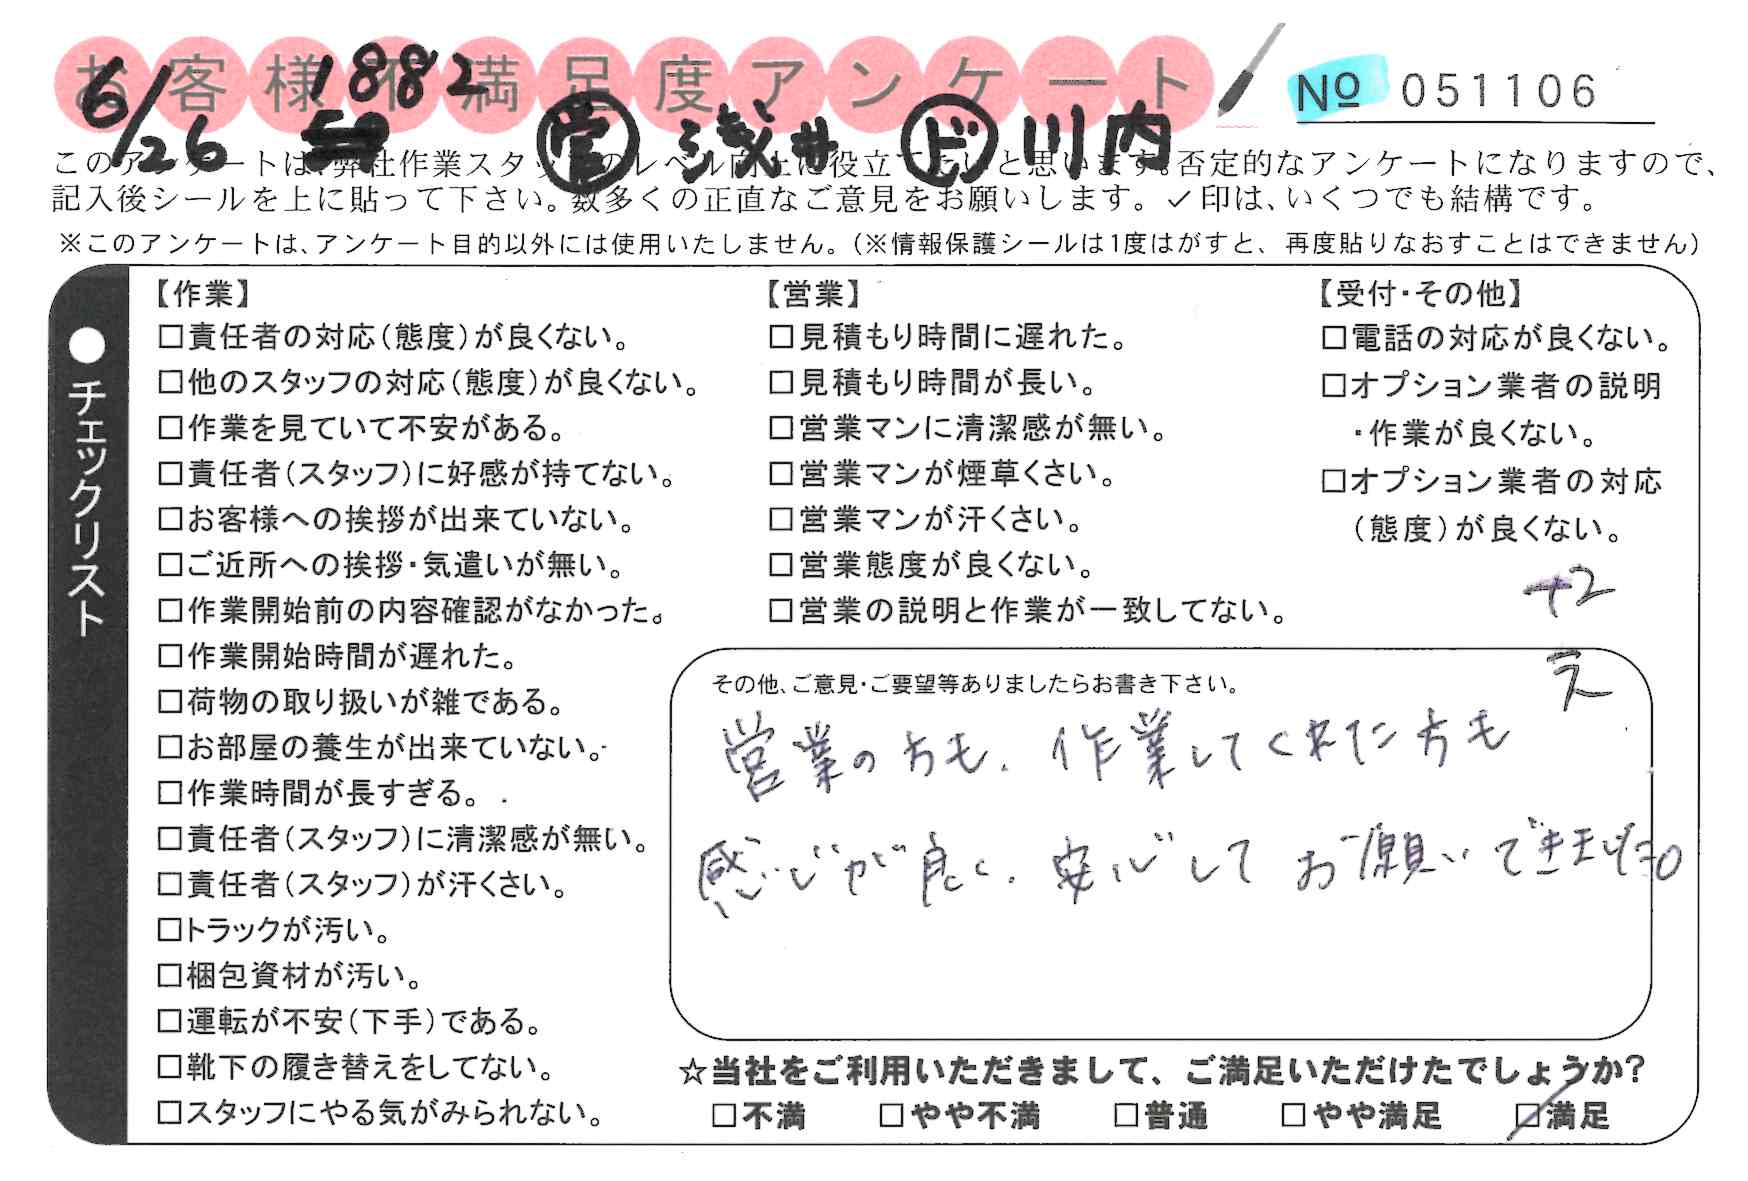 お客様不満足度アンケート
№ 051106
6/26 1882 営 浅井 ド 川内
このアンケートは、弊社作業スタッフのレベル向上に役立てたいと思います。否定的なアンケートになりますので、
記入後シールを上に貼って下さい。数多くの正直なご意見をお願いします。✓印は、いくつでも結構です。
※このアンケートは、アンケート目的以外には使用いたしません。(※情報保護シールは1度はがすと、再度貼りなおすことはできません)
●チェックリスト
【作業】
□責任者の対応(態度)が良くない。
□他のスタッフの対応(態度)が良くない。
□作業を見ていて不安がある。
□責任者(スタッフ)に好感が持てない。
□お客様への挨拶が出来ていない。
□ご近所への挨拶・気遣いが無い。
□作業開始前の内容確認がなかった。
□作業開始時間が遅れた。
□荷物の取り扱いが雑である。
□お部屋の養生が出来ていない。
□作業時間が長すぎる。
□責任者(スタッフ)に清潔感が無い。
□責任者(スタッフ)が汗くさい。
□トラックが汚い。
□梱包資材が汚い。
□運転が不安(下手)である。
□靴下の履き替えをしてない。
□スタッフにやる気がみられない。
【営業】
□見積もり時間に遅れた。
□見積もり時間が長い。
□営業マンに清潔感が無い。
□営業マンが煙草くさい。
□営業マンが汗くさい。
□営業態度が良くない。
□営業の説明と作業が一致してない。
【受付・その他】
□電話の対応が良くない。
□オプション業者の説明
・作業が良くない。
□オプション業者の対応
(態度)が良くない。
+2
その他、ご意見・ご要望等ありましたらお書き下さい。
営業の方も、作業してくれた方も
感じが良く、安心してお願いできました。
☆当社をご利用いただきまして、ご満足いただけたでしょうか?
□不満 □やや不満 □普通 □やや満足 ☑満足